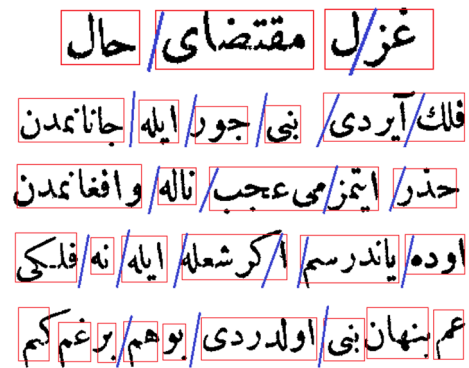 غزل مقتضای حال
فلك آیردی بنی جور ایله جانانمدن
حذر ایتمزمی عجب ناله و افغانمدن
اوده یاندرسم اكر شعله ایله نه فلكی
عم بنهان بنی اولدردی بو هم بر غم كیم